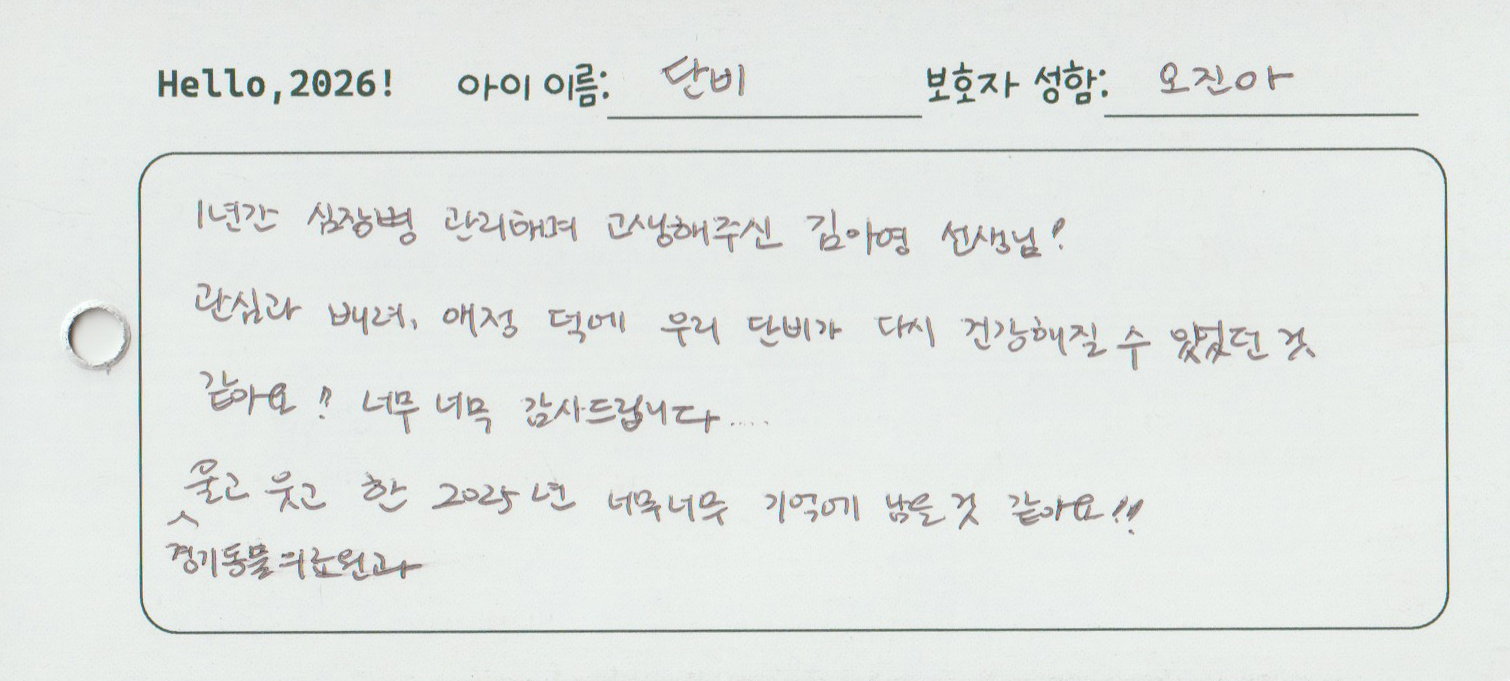 Hello,2026! 아이 이름: 단비 보호자 성함: 오진아
1년간 심장병 관리하며 고생해주신 김아영 선생님!
관심과 배려, 애정 덕에 우리 단비가 다시 건강해질 수 있었던 것
같아요!! 너무 너무 감사드립니다.....
울고 웃고 한 2025년 너무너무 기억에 남을 것 같아요!!
경기동물의료원과